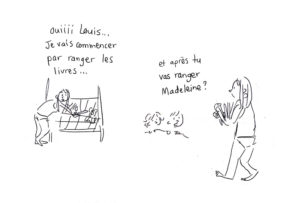 ouiiii Louis...
Je vais commencer
par ranger les
livres...
et après tu
vas ranger
Madeleine?